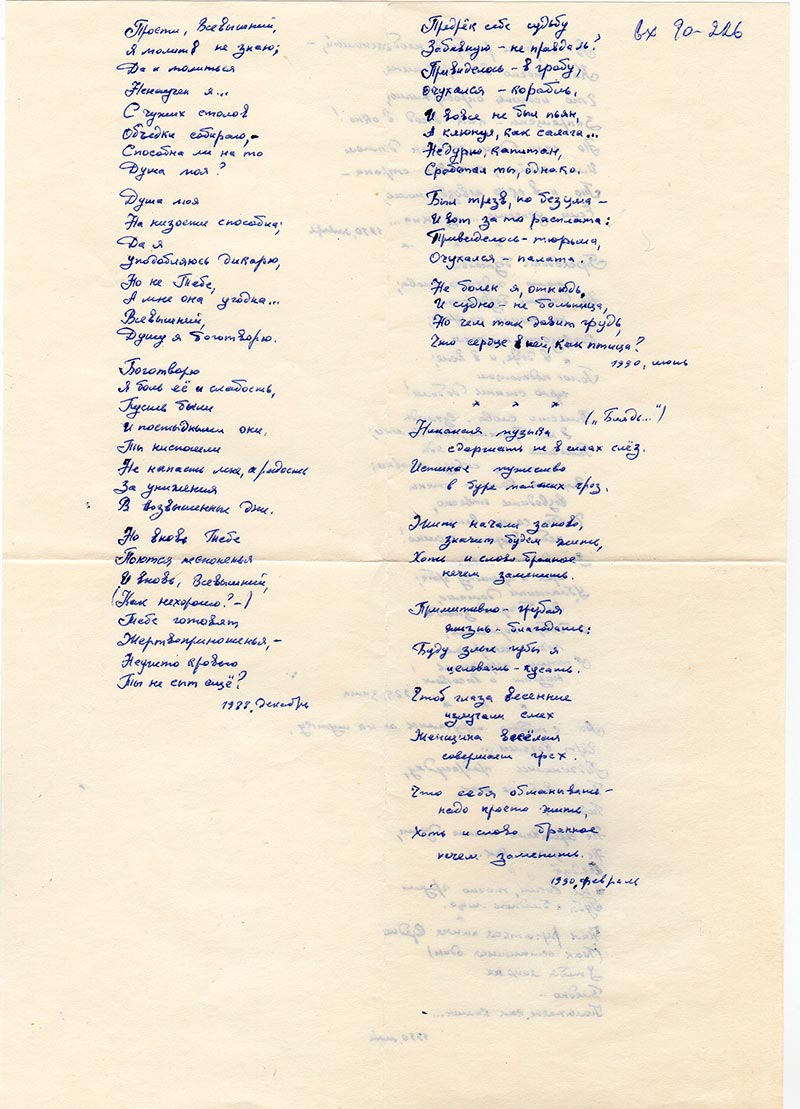 Прости, Всевышний,
Я молитв не знаю;
Да и молиться
Ненаучен я...
С чужих столов
Объедки собираю, –
Способна ли на то
Душа моя?
Душа моя
На низости способна;
Да я
уподобляюсь дикарю,
Но не Тебе,
А мне она угодна...
Всевышний,
Душу я боготворю.
Боготворю
Я боль её и слабость,
Пусть были
И постыдными они.
Ты ниспошли
Не напасть мне, а радость
За унижения
В возвышенные дни.
Но вновь Тебе
Поются песнопенья
И вновь, Всевышний,
(Как нехорошо? –)
Тебе готовят
Жертвоприношенья, –
Неушто кровью
Ты не сыт ещё?
1988, декабрь
вх 90-226
Предрёк себе судьбу
Забавную – не правда ль?
Привиделось – в гробу,
Очухался – корабль.
И вовсе не был пьян,
А клюнул, как салага...
Недурно, капитан,
Сработал ты, однако.
Был трезв, но без ума –
И вот за то расплата:
Привиделось – тюрьма,
Очухался – палата.
Не болен я, отнюдь,
И судно – не больница,
Но чем так давит грудь,
Что сердце в ней, как птица?
1990, июнь
* * *
(„Блядь...“)
Никакая музыка
сдержать не в силах слёз.
Истинное мужество
в буре майских гроз.
Жить начали заново,
значит будем жить,
Хоть и слово бранное
нечем заменить.
Примитивно – грубая
жизнь – благодать:
Буду злые губы я
целовать – кусать.
Чтоб глаза весенние
излучали смех
Женщина весёлая
совершает грех.
Что себя обманывать –
надо просто жить,
Хоть и слово бранное
нечем заменить.
1990, февраль